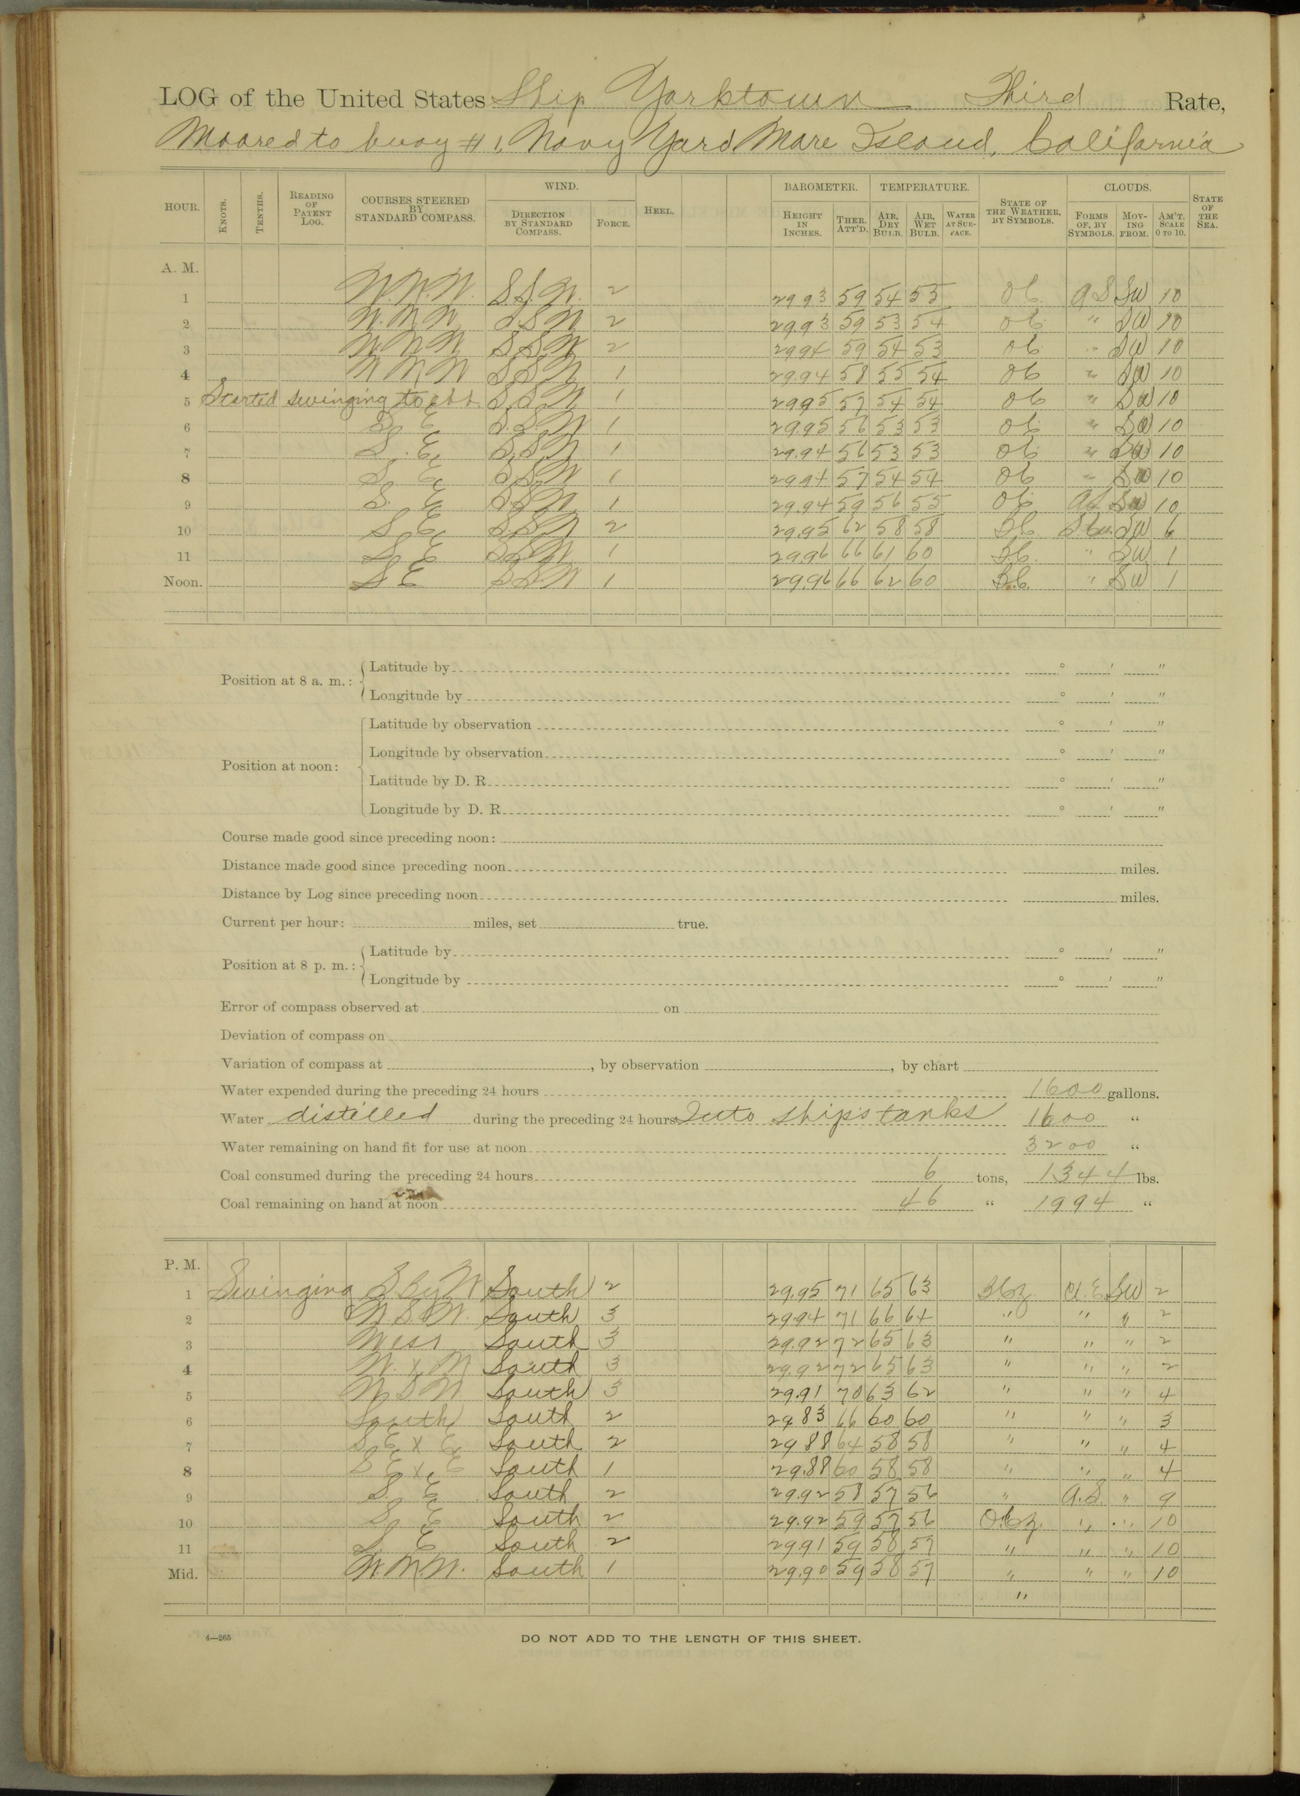 LOG of the United States Ship Yorktown Third Rate,
Moored to buoy # 1, Navy Yard Mare Island, California
HOUR. KNOTS. TENTHS. READING OF PATENT LOG. COURSES STEERED BY STANDARD COMPASS. WIND. DIRECTION BY STANDARD COMPASS. FORCE. HEEL. BAROMETER. HEIGHT IN INCHES. THER. ATT'D. TEMPERATURE. AIR, DRY BULB. AIR, WET BULB. WATER AT SURFACE. STATE OF THE WEATHER, BY SYMBOLS. CLOUDS. FORMS OF, BY SYMBOLS. MOVING FROM. AM'T. SCALE 0 TO 10. STATE OF THE SEA.
A. M.
1 W.N.W. S.S.W. 2 29 93 59 54 53 O C. A S SW 10
2 W.N.W S.S.W 2 29 93 59 53 54 O C " SW 10
3 W N W S.S.W 2 29 94 59 54 53 O C " SW 10
4 W N W S S W 1 29 94 58 55 54 O C " SW 10
5 Started swinging to ebb S S W 1 29 95 57 54 54 O C " SW 10
6 S. E S.S W 1 29.95 56 53 53 O C. " SW 10
7 S. E, S.S W 1 29.94 56 53 53 O C. " SW 10
8 S E S S W 1 29 94 57 54 54 O C " SW 10
9 S. E S S W 1 29.94 59 56 55 O C. A S SW 10
10 S E, S.S W 2 29.95 62 58 58 SW 6
11 S. E S S W 1 29.96 66 61 60 " SW 1
Noon. S E S S W 1 29.96 66 62 60 " SW 1
Position at 8 a. m.: Latitude by ° ′ ″
Longitude by ° ′ ″
Position at noon: Latitude by observation ° ′ ″
Longitude by observation ° ′ ″
Latitude by D. R. ° ′ ″
Longitude by D. R. ° ′ ″
Course made good since preceding noon:
Distance made good since preceding noon miles.
Distance by Log since preceding noon miles.
Current per hour: miles, set true.
Position at 8 p. m.: Latitude by ° ′ ″
Longitude by ° ′ ″
Error of compass observed at on
Deviation of compass on
Variation of compass at , by observation , by chart
Water expended during the preceding 24 hours 1600 gallons.
Water distilled during the preceding 24 hours Into ship's tanks 1600 "
Water remaining on hand fit for use at noon 3200 "
Coal consumed during the preceding 24 hours 6 tons, 1344 lbs.
Coal remaining on hand at noon 46 " 1994 "
P. M.
1 Swinging S. By W South 2 29.95 71 65 63 SW 2
2 W S W. South 3 29.94 71 66 64 " " " 2
3 West South 3 29.92 72 65 63 " " " 2
4 South 3 29.92 72 65 63 " " " 2
5 W S W South 3 29.91 70 63 62 " " " 4
6 South South 2 29 83 66 60 60 " " " 3
7 S E x E South 2 29 88 64 58 58 " " " 4
8 S E x E South 1 29.88 60 58 58 " " " 4
9 S. E South 2 29.92 58 57 56 " A.S. " 9
10 S. E South 2 29.92 59 57 56 " " 10
11 S E South 2 29.91 59 58 57 " " " 10
Mid. W.N.W. South 1 29.90 59 58 57 " " " 10
"
4—265 DO NOT ADD TO THE LENGTH OF THIS SHEET.